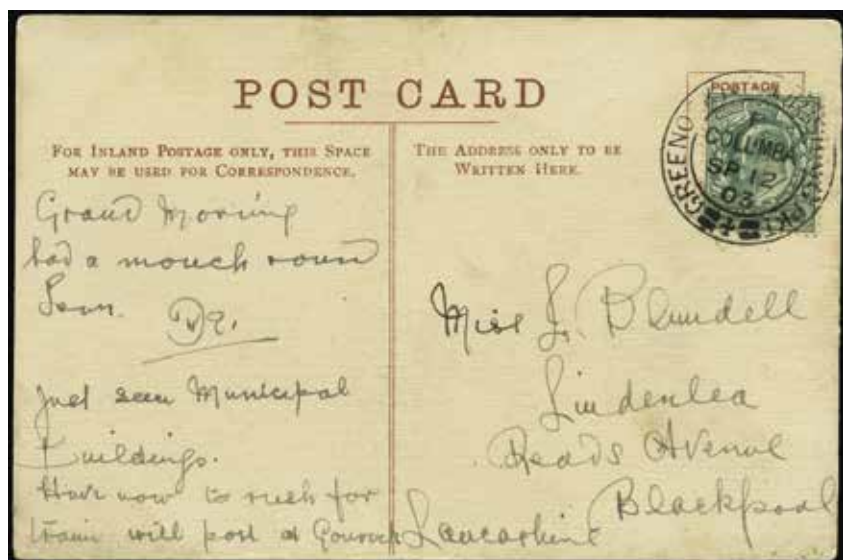 POST CARD
FOR INLAND POSTAGE ONLY, THIS SPACE
MAY BE USED FOR CORRESPONDENCE.
THE ADDRESS ONLY TO BE
WRITTEN HERE.
POSTAGE
GREENO
COLUMBA
SP 12
03
Grand Morning
had a mouch round
Just seen Municipal
Buildings.
Have now to rush for
train will post at Gourock
Miss J. Blundell
Lindenlea
Reads Avenue
Blackpool
Lancashire